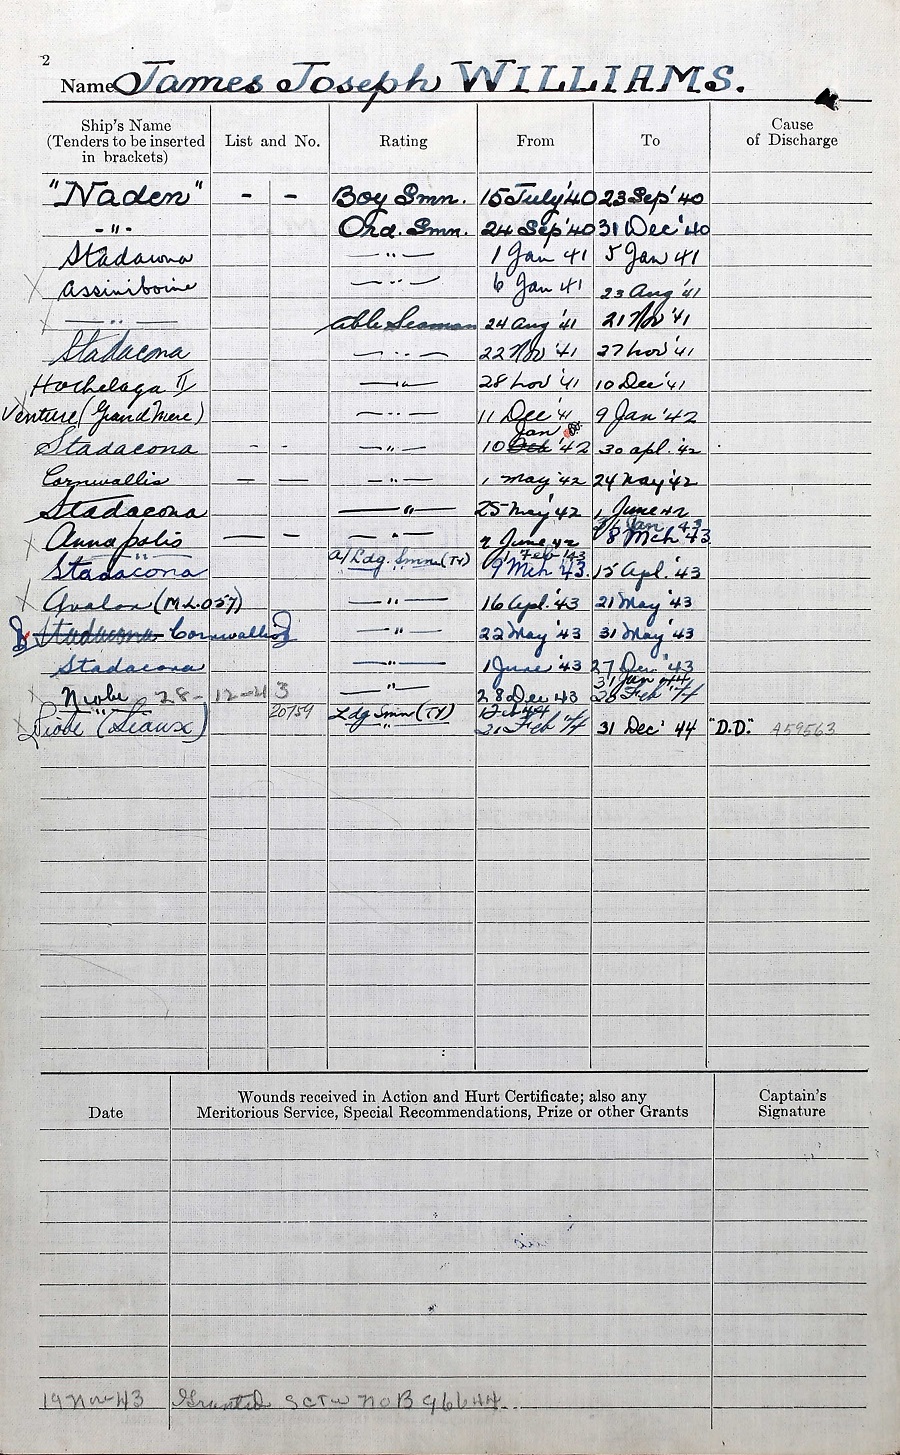 2
Name James Joseph WILLIAMS.
Ship's Name (Tenders to be inserted in brackets) List and No. Rating From To Cause of Discharge
"Naden" - - Boy Smn. 15 July '40 23 Sep' 40
-"- Ord. Smn. 24 Sep '40 31 Dec '40
Stadacona —"— 1 Jan 41 5 Jan '41
X Assiniboine —"— 6 Jan 41 23 Aug '41
X —"— Able Seaman 24 Aug '41 21 Nov '41
Stadacona —"— 22 Nov '41 27 Nov '41
Hochelaga II —"— 28 Nov '41 10 Dec '41
Venture (Grand Mere) —"— 11 Dec '41 9 Jan '42
Jan
Stadacona - - —"— 10 Oct '42 30 Apl. '42
Cornwallis — — —"— 1 May '42 24 May '42
Stadacona —"— 25 May '42 1 June 42
31 Jan 43
X Annapolis — — —"— 2 June 42 8 Mch '43
—"— A/Ldg. Smn (Ty) 1 Feb '43
Stadacona —"— 9 Mch '43. 15 Apl. '43
X Avalon (M.L. 057) —"— 16 Apl. '43 21 May '43
Stadacona Cornwallis —"— 22 May '43 31 May '43
Stadacona —"— 1 June '43 27 Dec '43
31 Jan 44
X Niobe 28-12-43 —"— 28 Dec 43 20 Feb '44
" 20759 Ldg Smn (Ty) 1 Feb 44
X Niobe (Sioux) " 21 Feb '44 31 Dec' 44 "D.D." A59563
Date Wounds received in Action and Hurt Certificate; also any Meritorious Service, Special Recommendations, Prize or other Grants Captain's Signature
19 Nov 43 Granted S C T W No B 96644.